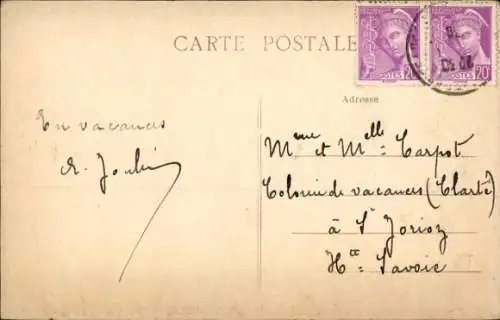 CARTE POSTALE
20
20
POSTES
Adresse
En vacances
Mme et Mlle Carpot
Colonie de vacances (Clarté)
à St Jorioz
Hte Savoie